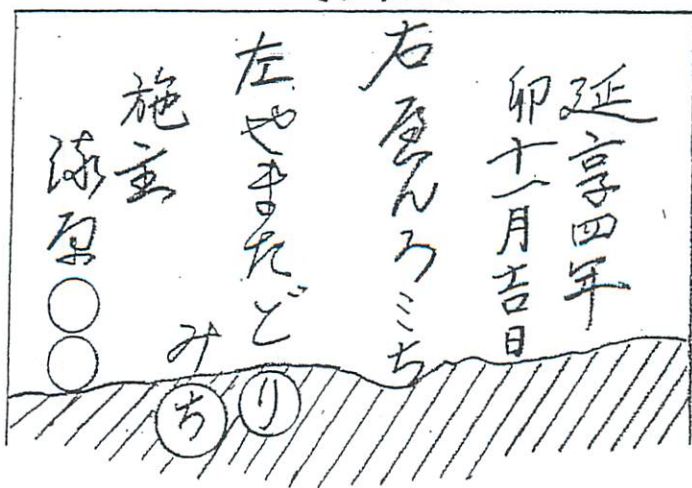 延享四年
卯十一月吉日
右へんろミち
左やまたど(り)
み(ち)
施主
塚原○○